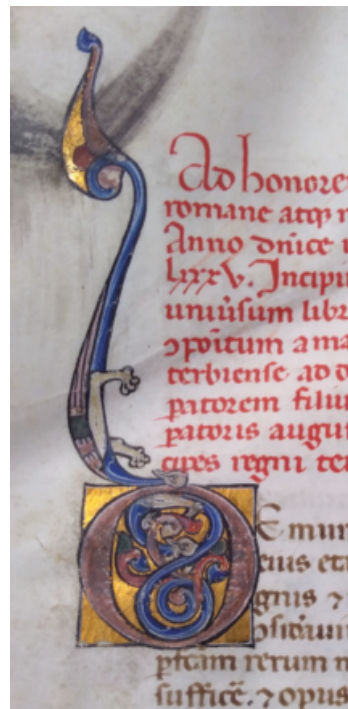 Ad honore
romane atqȝ
Anno dnice
lxxx V. Incipi
uniūsum libr
ɔpoītum a ma
terbiense ad
patorem filiu
patoris augu
cipes regni te
DE mun
eius et
gnis ⁊
ɔlidaui
pfcām rerum
suffic̄. ⁊ opus